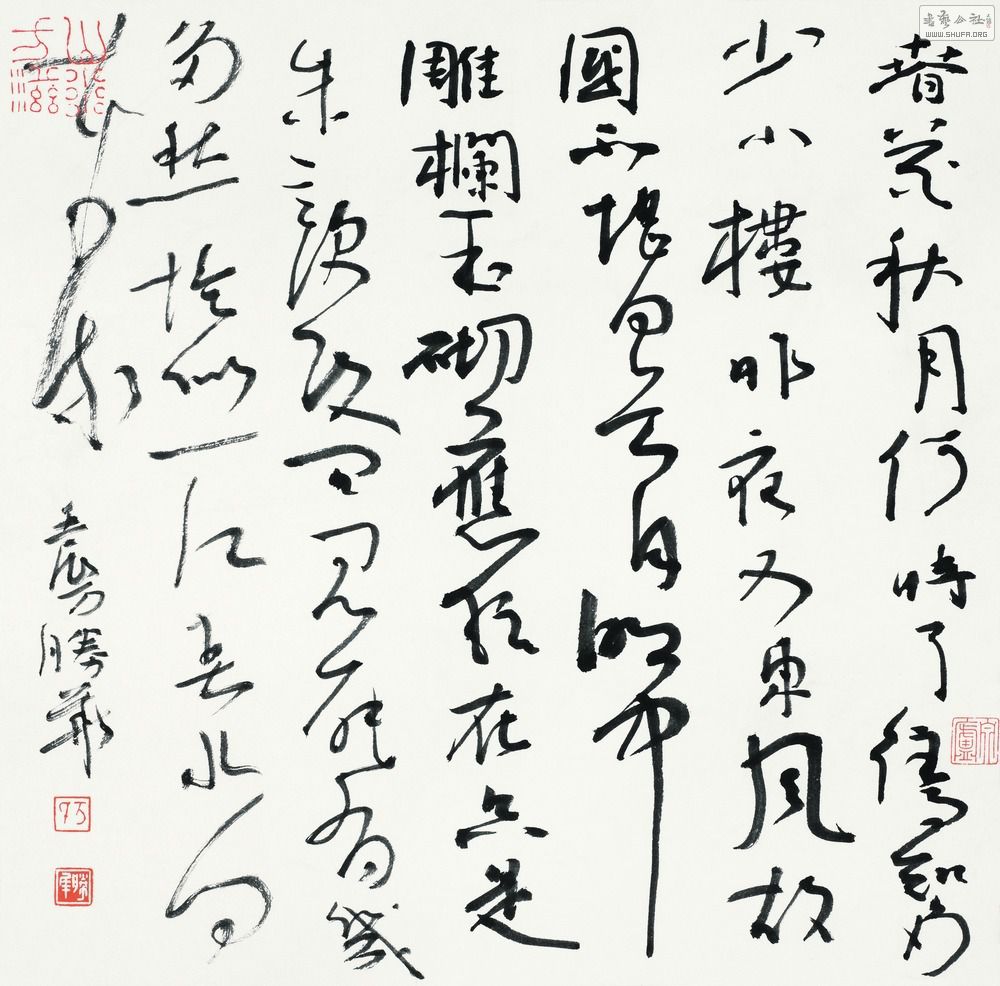 春花秋月何時了往事知多
少小樓昨夜又東風故
國不堪回首月明中
雕欄玉砌應猶在只是
朱顏改問君能有幾
多愁恰似一江春水向
東流
壬辰万勝華
万
勝華
书艺公社
WWW.SHUFA.ORG